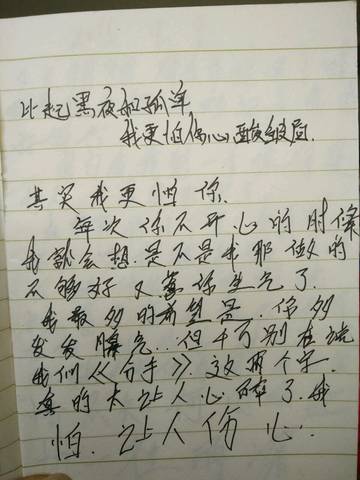 比起黑夜和孤单
我更怕伤心酸
其实我更怕你.
每次你不开心的时候
我就会想.是不是我那做的
不够好又惹你生气了.
我最多的希望是.你多
发发脾气..但千万别在说
我们《分手》这两个字.
真的太让人心碎了.我
怕.让人伤心.